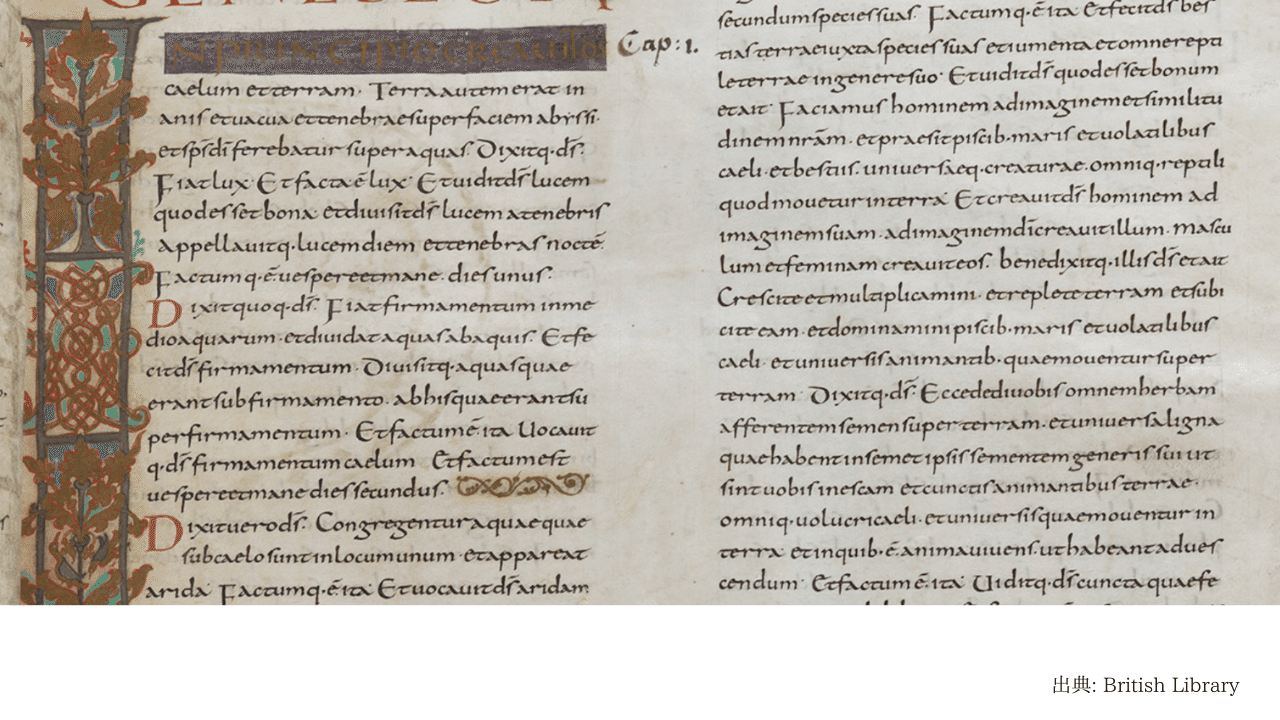 IN PRINCIPIO CREAUIT DS
Cap: 1.
caelum et terram· Terra autem erat in
anis et uacua et tenebrae super faciem abyssi·
et sps dī ferebatur super aquas· Dixitq· ds̄·
Fiat lux· Et facta ē lux· Et uidit ds̄ lucem
quod esset bona· et diuisit ds̄ lucem a tenebris
appellauitq· lucem diem et tenebras noctē·
Factumq· ē uespere et mane· dies unus·
Dixit quoq· ds̄· Fiat firmamentum in me
dio aquarum· et diuidat aquas ab aquis· Et fe
cit ds̄ firmamentum· Diuisitq· aquas quae
erant sub firmamento· ab his quae erant su
per firmamentum· Et factum ē ita Uocauit
q· ds̄ firmamentum caelum Et factum est
uespere et mane dies secundus·
Dixit uero ds̄· Congregentur aquae quae
sub caelo sunt in locum unum· et appareat
arida· Factumq· ē ita· Et uocauit ds̄ aridam
secundum species suas· Factumq· ē ita Et fecit ds̄ bes
tias terrae iuxta species suas et iumenta et omne repti
le terrae in genere suo· Et uidit ds̄ quod esset bonum
et ait· Faciamus hominem ad imaginem et similitu
dinem nrām· et praesit piscib· maris et uolatilibus
caeli· et bestiis· uniuersaeq· creaturae· omniq· reptili
quod mouetur in terra· Et creauit ds̄ hominem ad
imaginem suam· ad imaginem dī creauit illum· mascu
lum et feminam creauit eos· benedixitq· illis ds̄ et ait
Crescite et multiplicamini· et replete terram et subi
cite eam· et dominamini piscib· maris et uolatilibus
caeli· et uniuersis animantib· quae mouentur super
terram· Dixitq· ds̄· Ecce dedi uobis omnem herbam
afferentem semen super terram· et uniuersa ligna
quae habent in semet ipsis sementem generis sui ut
sint uobis in escam et cunctis animantibus terrae·
omniq· uolucri caeli· et uniuersis quae mouentur in
terra· et in quib· ē anima uiuens· ut habeant ad ues
cendum· Et factum ē ita· Uiditq· ds̄ cuncta quae fe
出典: British Library